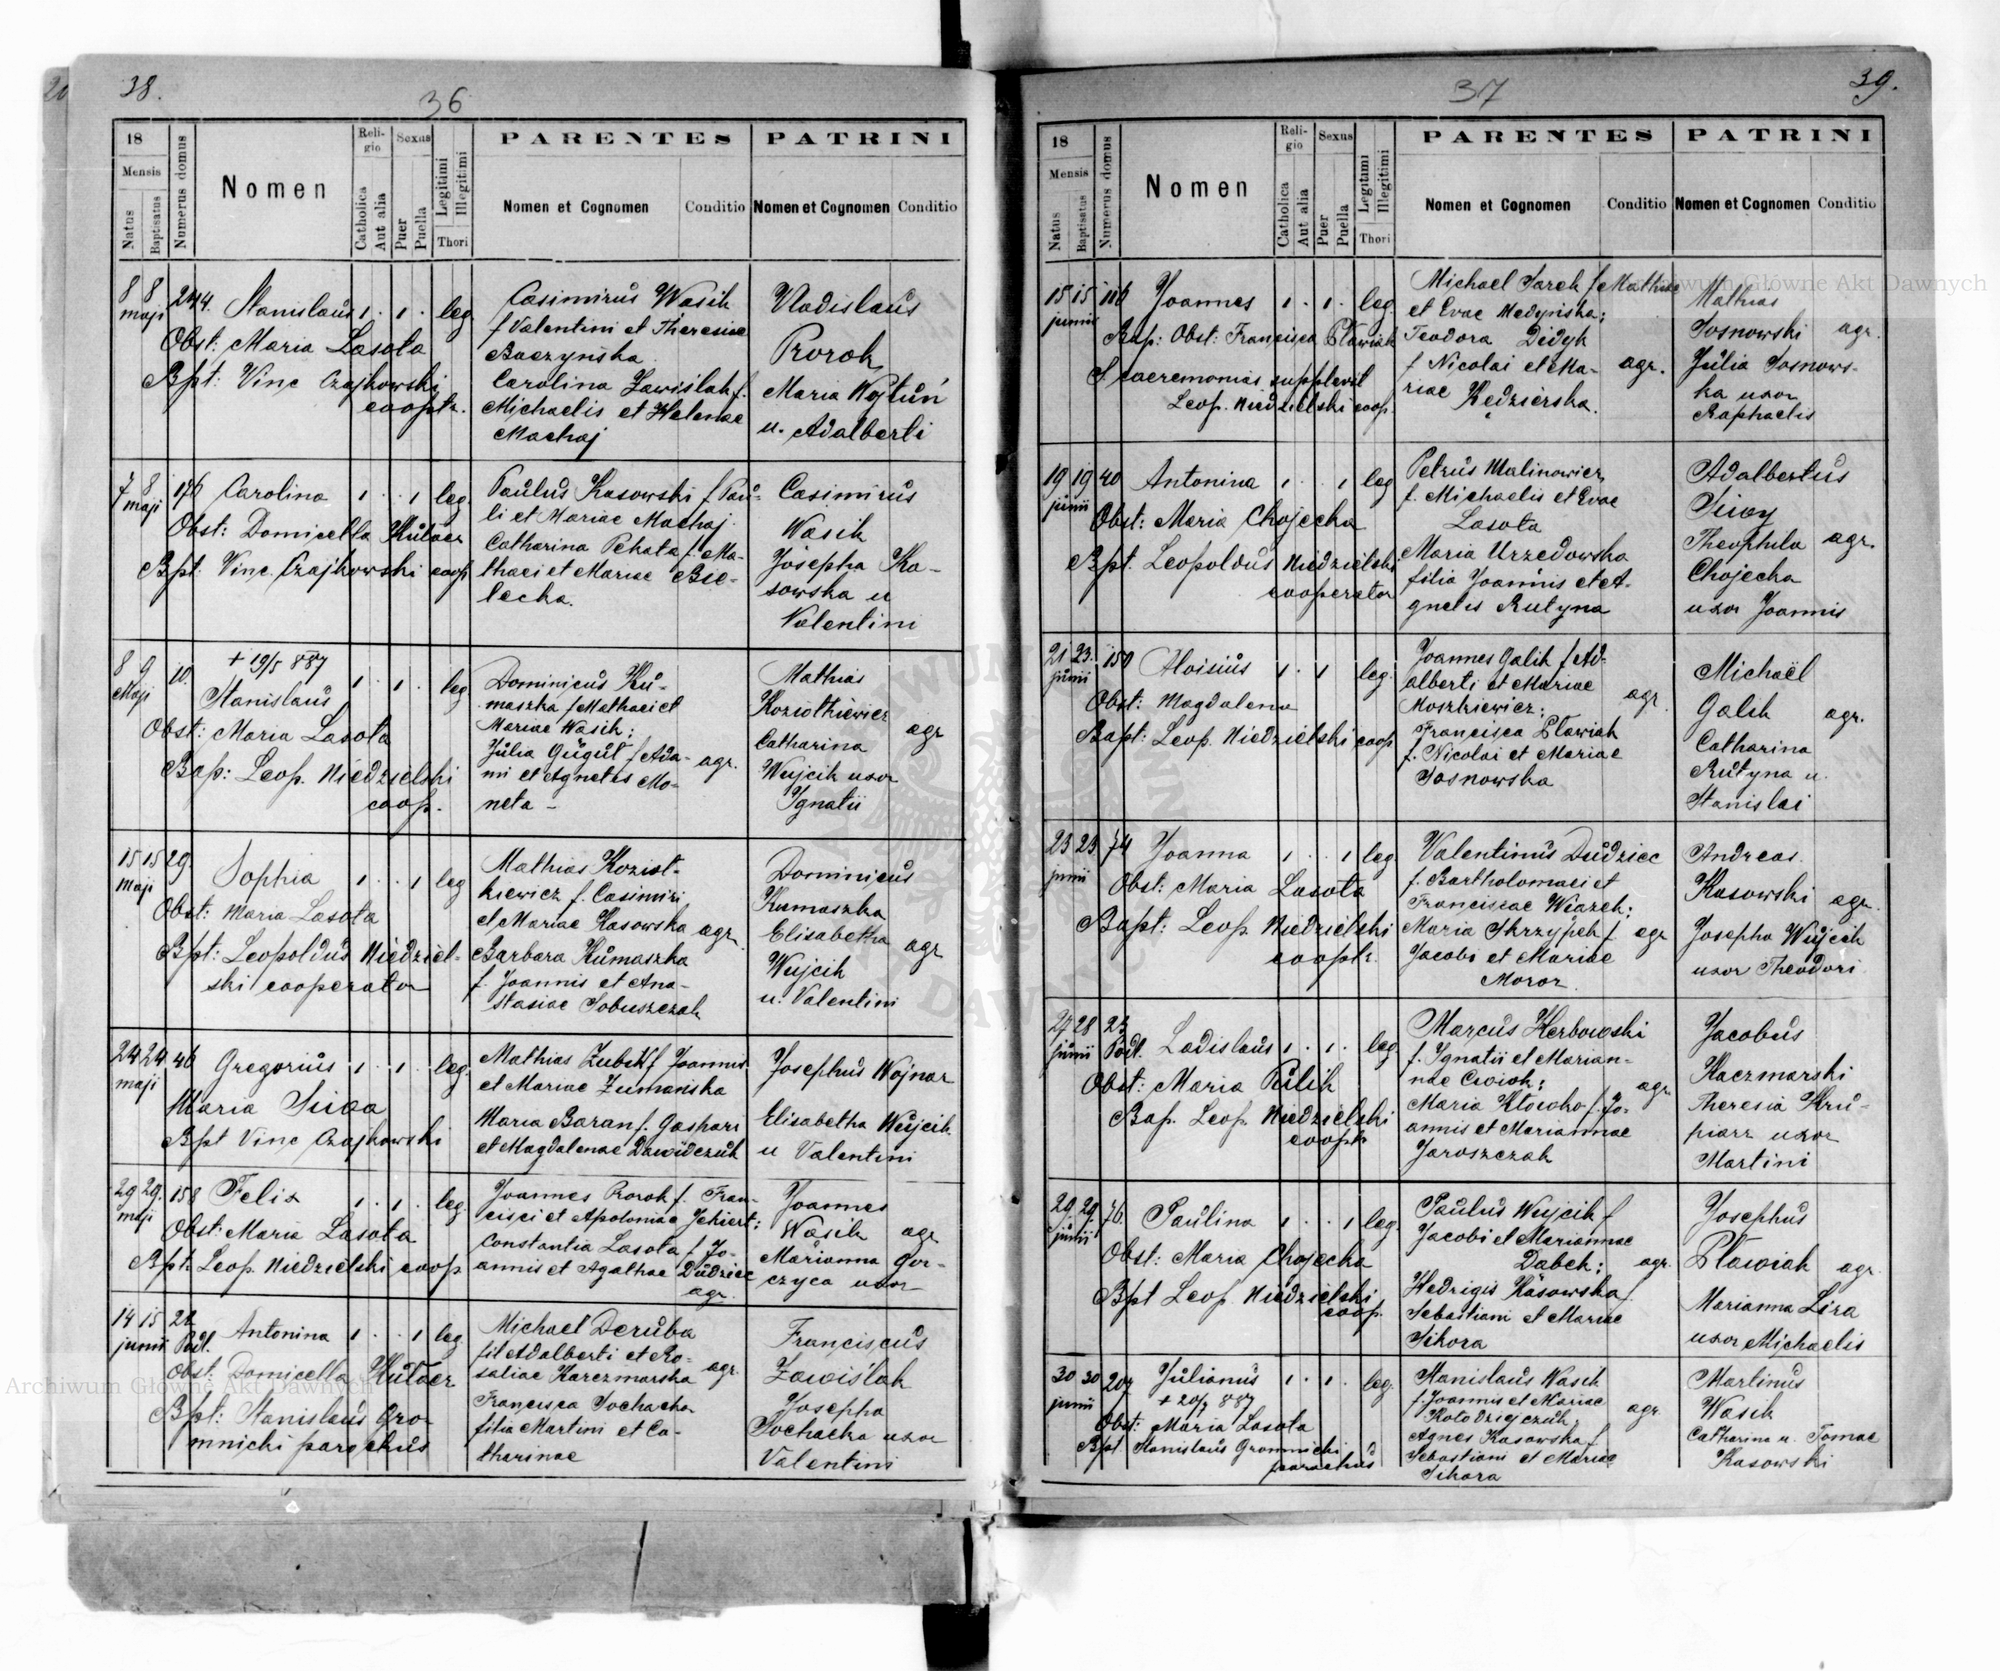 38.
36
18
Mensis
Natus
Baptisatus
Numerus domus
Nomen
Religio
Catholica
Aut alia
Sexus
Puer
Puella
Legitimi
Illegitimi
Thori
PARENTES
Nomen et Cognomen
Conditio
PATRINI
Nomen et Cognomen
Conditio
8 8 244. Stanislaus 1 . 1 . leg
maji
Obst: Maria Lasota
Bpt: Vinc Czajkowski
cooptr.
Casimirus Wasik
f Valentini et Theresiae
Baczyńska.
Carolina Zawiślak f.
Michaelis et Helenae
Machaj
Vladislaus
Prorok,
Maria Wojtuń
u. Adalberti
7 8 176 Carolina 1 . . 1 leg
maji
Obst: Domicella Hulver
Bpt. Vinc. Czajkowski coop
Paulus Kasowski f Pau-
li et Mariae Machaj.
Catharina Pekata f. Ma-
thaei et Mariae Bie-
lecka.
Casimirus
Wasik
Josepha Ka-
sowska u
Valentini
8 9 10. + 19/5 887
Maji Stanislaus 1 . 1 . leg
Obst: Maria Lasota
Bap: Leop. Niedzielski
coop.
Dominicus Ku-
maszka f Mathaei et
Mariae Wasik;
Julia Gugut f Ada- agr.
mi et Agnetis Mo-
neta -
Mathias
Koziotkiewicz
Catharina agr
Wujcik uxor
Ignatii
15 15 29.
maji Sophia 1 . . 1 leg
Obst: Maria Lasota
Bpt: Leopoldus Niedziel-
ski cooperator
Mathias Koziot-
kiewicz f. Casimiri
et Mariae Kasowska agr.
Barbara Kumaszka
f. Joannis et Ana-
stasiae Sobuszczak
Dominicus
Kumaszka
Elisabetha agr
Wujcik
u. Valentini
24 24 46 Gregorius 1 . 1 . leg.
maji
Maria
Bpt Vinc Czajkowski
Mathias Zubek f Joannis
et Mariae Zumańska
Maria Baran f. Gaspari
et Magdalenae Dawidczuk
Josephus Wojnar
Elisabetha Wujcik
u Valentini
29 29. 158 Felix 1 . 1 . leg.
maji
Obst: Maria Lasota
Bpt: Leop. Niedzielski coop
Joannes Prorok f. Fran-
cisci et Apoloniae
Constantia Lasota f Jo-
annis et Agathae Dudziec
agr.
Joannes
Wasik agr
Marianna Gor-
czyca uxor
14 15 22
junii Podl. Antonina 1 . . 1 leg
Obst: Domicella Hulver
Bpt: Stanislaus Gro-
mnicki parochus
Michael Deruba
fil Adalberti et Ro-
saliae Karczmarska agr.
Francisca Sochacka
filia Martini et Ca-
tharinae
Franciscus
Zawiślak
Josepha
Sochacka uxor
Valentini
39.
37
18
Mensis
Natus
Baptisatus
Numerus domus
Nomen
Religio
Catholica
Aut alia
Sexus
Puer
Puella
Legitimi
Illegitimi
Thori
PARENTES
Nomen et Cognomen
Conditio
PATRINI
Nomen et Cognomen
Conditio
15 15 116 Joannes 1 . 1 . leg
junii
Bap: Obst: Francisca Pławiak
S caeremonias supplevit
Leop. Niedzielski coop
Michael Sarek f Mathiae
et Evae Medyńska;
Teodora Didyk
f Nicolai et Ma- agr.
riae Kędzierska.
Mathias
Sosnowski agr.
Julia Sosnows-
ka uxor
Raphaelis
19 19 40 Antonina 1 . . 1 leg
junii
Obst: Maria Chojecka
Bpt. Leopoldus Niedzielski
cooperator
Petrus Malinowicz
f. Michaelis et Evae
Lasota
Maria Urzedowska
filia Joannis et A-
gnetis Rutyna
Adalbertus
Theophila agr.
Chojecka
uxor Joannis
21 23. 150 Aloisius 1 . 1 leg.
junii
Obst: Magdalena
Bapt: Leop. Niedzielski coop
Joannes Galik f Ad-
alberti et Mariae
Moszkiewicz; agr
Francisca Pławiak
f. Nicolai et Mariae
Sosnowska
Michaël
Galik agr.
Catharina
Rutyna u.
Stanislai
23 23 74 Joanna 1 . . 1 leg
junii
Obst: Maria Lasota
Bapt: Leop. Niedzielski
cooptr.
Valentinus Dudziec
f. Bartholomaei et
Franciscae Wiazek;
Maria Skrzypek f. agr
Jacobi et Mariae
Moroz.
Andreas
Kasowski agr.
Josepha Wujcik
uxor Theodori
27 28 23
junii Podl. Ladislaus 1 . 1 . leg
Obst: Maria Pilik
Bap. Leop. Niedzielski
cooptr
Marcus Herbowski
f. Ignatii et Marian-
nae Cwiok; agr
Maria Kłocho f. Jo-
annis et Mariannae
Jaroszczak
Jacobus
Kaczmarski
Theresia Kru-
piarz uxor
Martini
29 29. 76. Paulina 1 . . 1 leg
junii
Obst: Maria Chojecka
Bpt Leop. Niedzielski
coop.
Paulus Wujcik f
Jacobi et Mariannae
Dabek; agr.
Hedvigis Kasowska f
Sebastiani et Mariae
Sikora
Josephus
Pławiak agr
Marianna Liza
uxor Michaelis
30 30 207 Julianus 1 . 1 . leg.
junii + 20/7 887
Obst: Maria Lasota
Bpt. Stanislaus Gromnicki
parochus
Stanislaus Wasik
f. Joannis et Mariae
Kołodziejczuk, agr.
Agnes Kasowska f
Sebastiani et Mariae
Sikora
Martinus
Wasik
Catharina u. Tomae
Kasowski
Archiwum Główne Akt Dawnych
Archiwum Główne Akt Dawnych